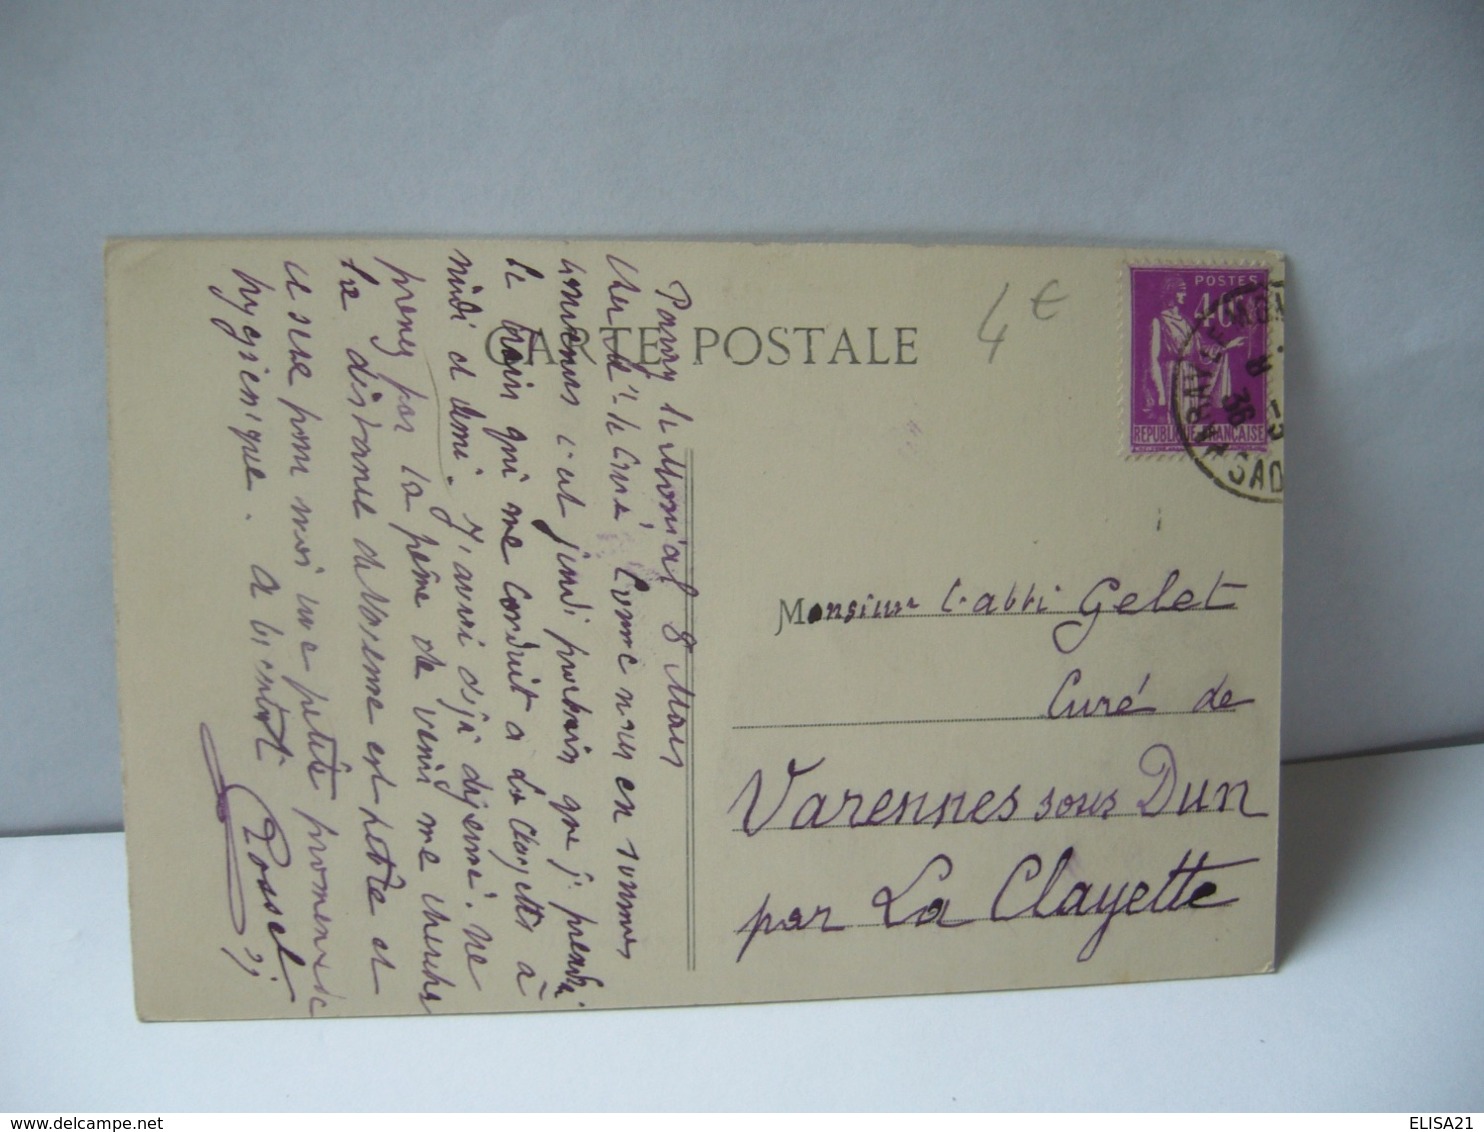 CARTE POSTALE
4€
POSTES
40c
REPUBLIQUE FRANÇAISE
PARAY LE MON
8 -5
36
Monsieur l'abbé Gelet
Curé de
Varennes sous Dun
par La Clayette
Paray le Monial 8 Mars
Cher M. le Curé, Comme nous en sommes
convenus c'est jeudi prochain que je prendrai
le train qui me conduit à La Clayette à
midi et demi. J'aurai déjà déjeuné. Ne
prenez pas la peine de venir me chercher
la distance de Varenne est petite et
ce sera pour moi une petite promenade
hygiénique. A bientôt
ELISA21